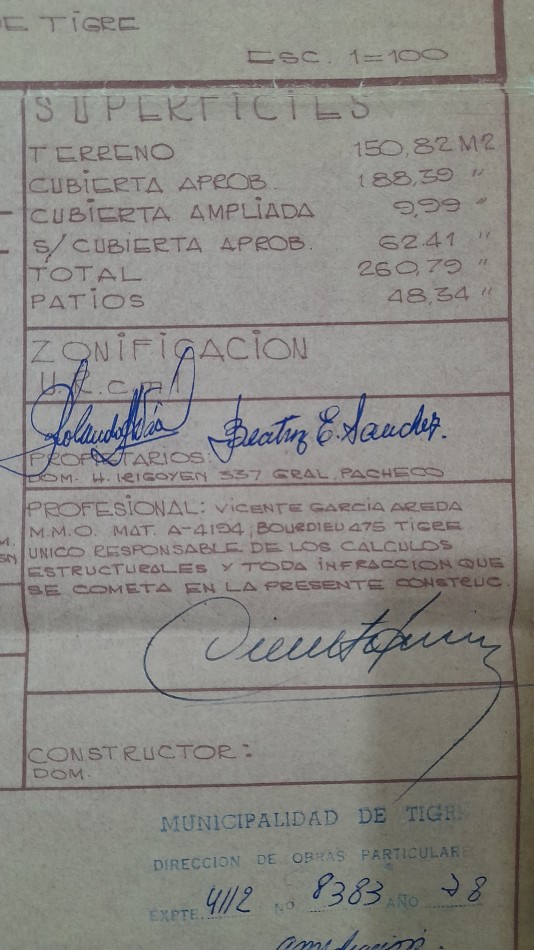 DE TIGRE
ESC. 1=100
SUPERFICIES
TERRENO 150,82 M2
CUBIERTA APROB. 188,39 "
CUBIERTA AMPLIADA 9,99 "
S/CUBIERTA APROB. 62.41 "
TOTAL 260,79 "
PATIOS 48,34 "
ZONIFICACION
Beatriz E. Sanchez.
PROPIETARIOS:
DOM. H. IRIGOYEN 337 GRAL. PACHECO
PROFESIONAL: VICENTE GARCIA AREDA
M.M.O. MAT. A-4194 BOURDIEU 475 TIGRE
UNICO RESPONSABLE DE LOS CALCULOS
ESTRUCTURALES Y TODA INFRACCION QUE
SE COMETA EN LA PRESENTE CONSTRUC.
CONSTRUCTOR:
DOM.
MUNICIPALIDAD DE TIGRE
DIRECCION DE OBRAS PARTICULARE
EXPTE. 4112 Nº 8383 AÑO 78
ampliación.